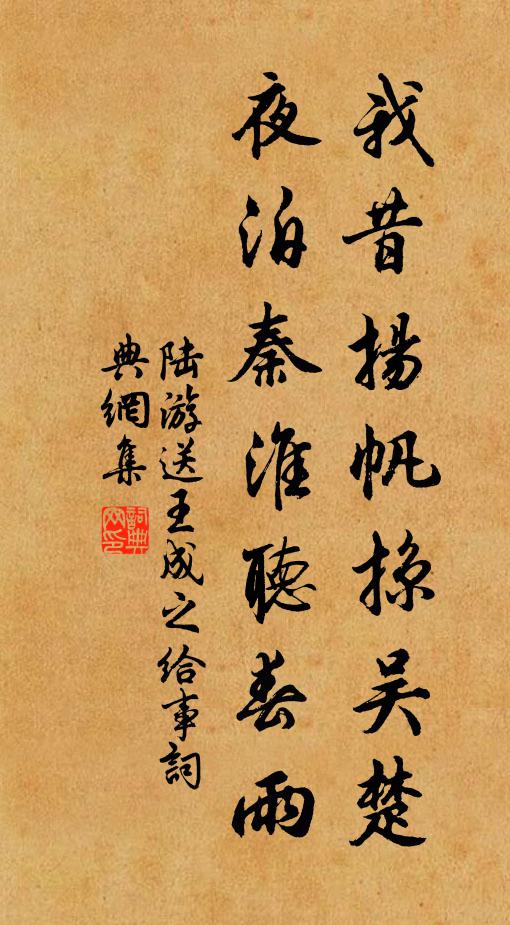 我昔揚帆掠吴楚
夜泊秦淮聽春雨
陆游送王成之给事詞
典網集
詞典
网印